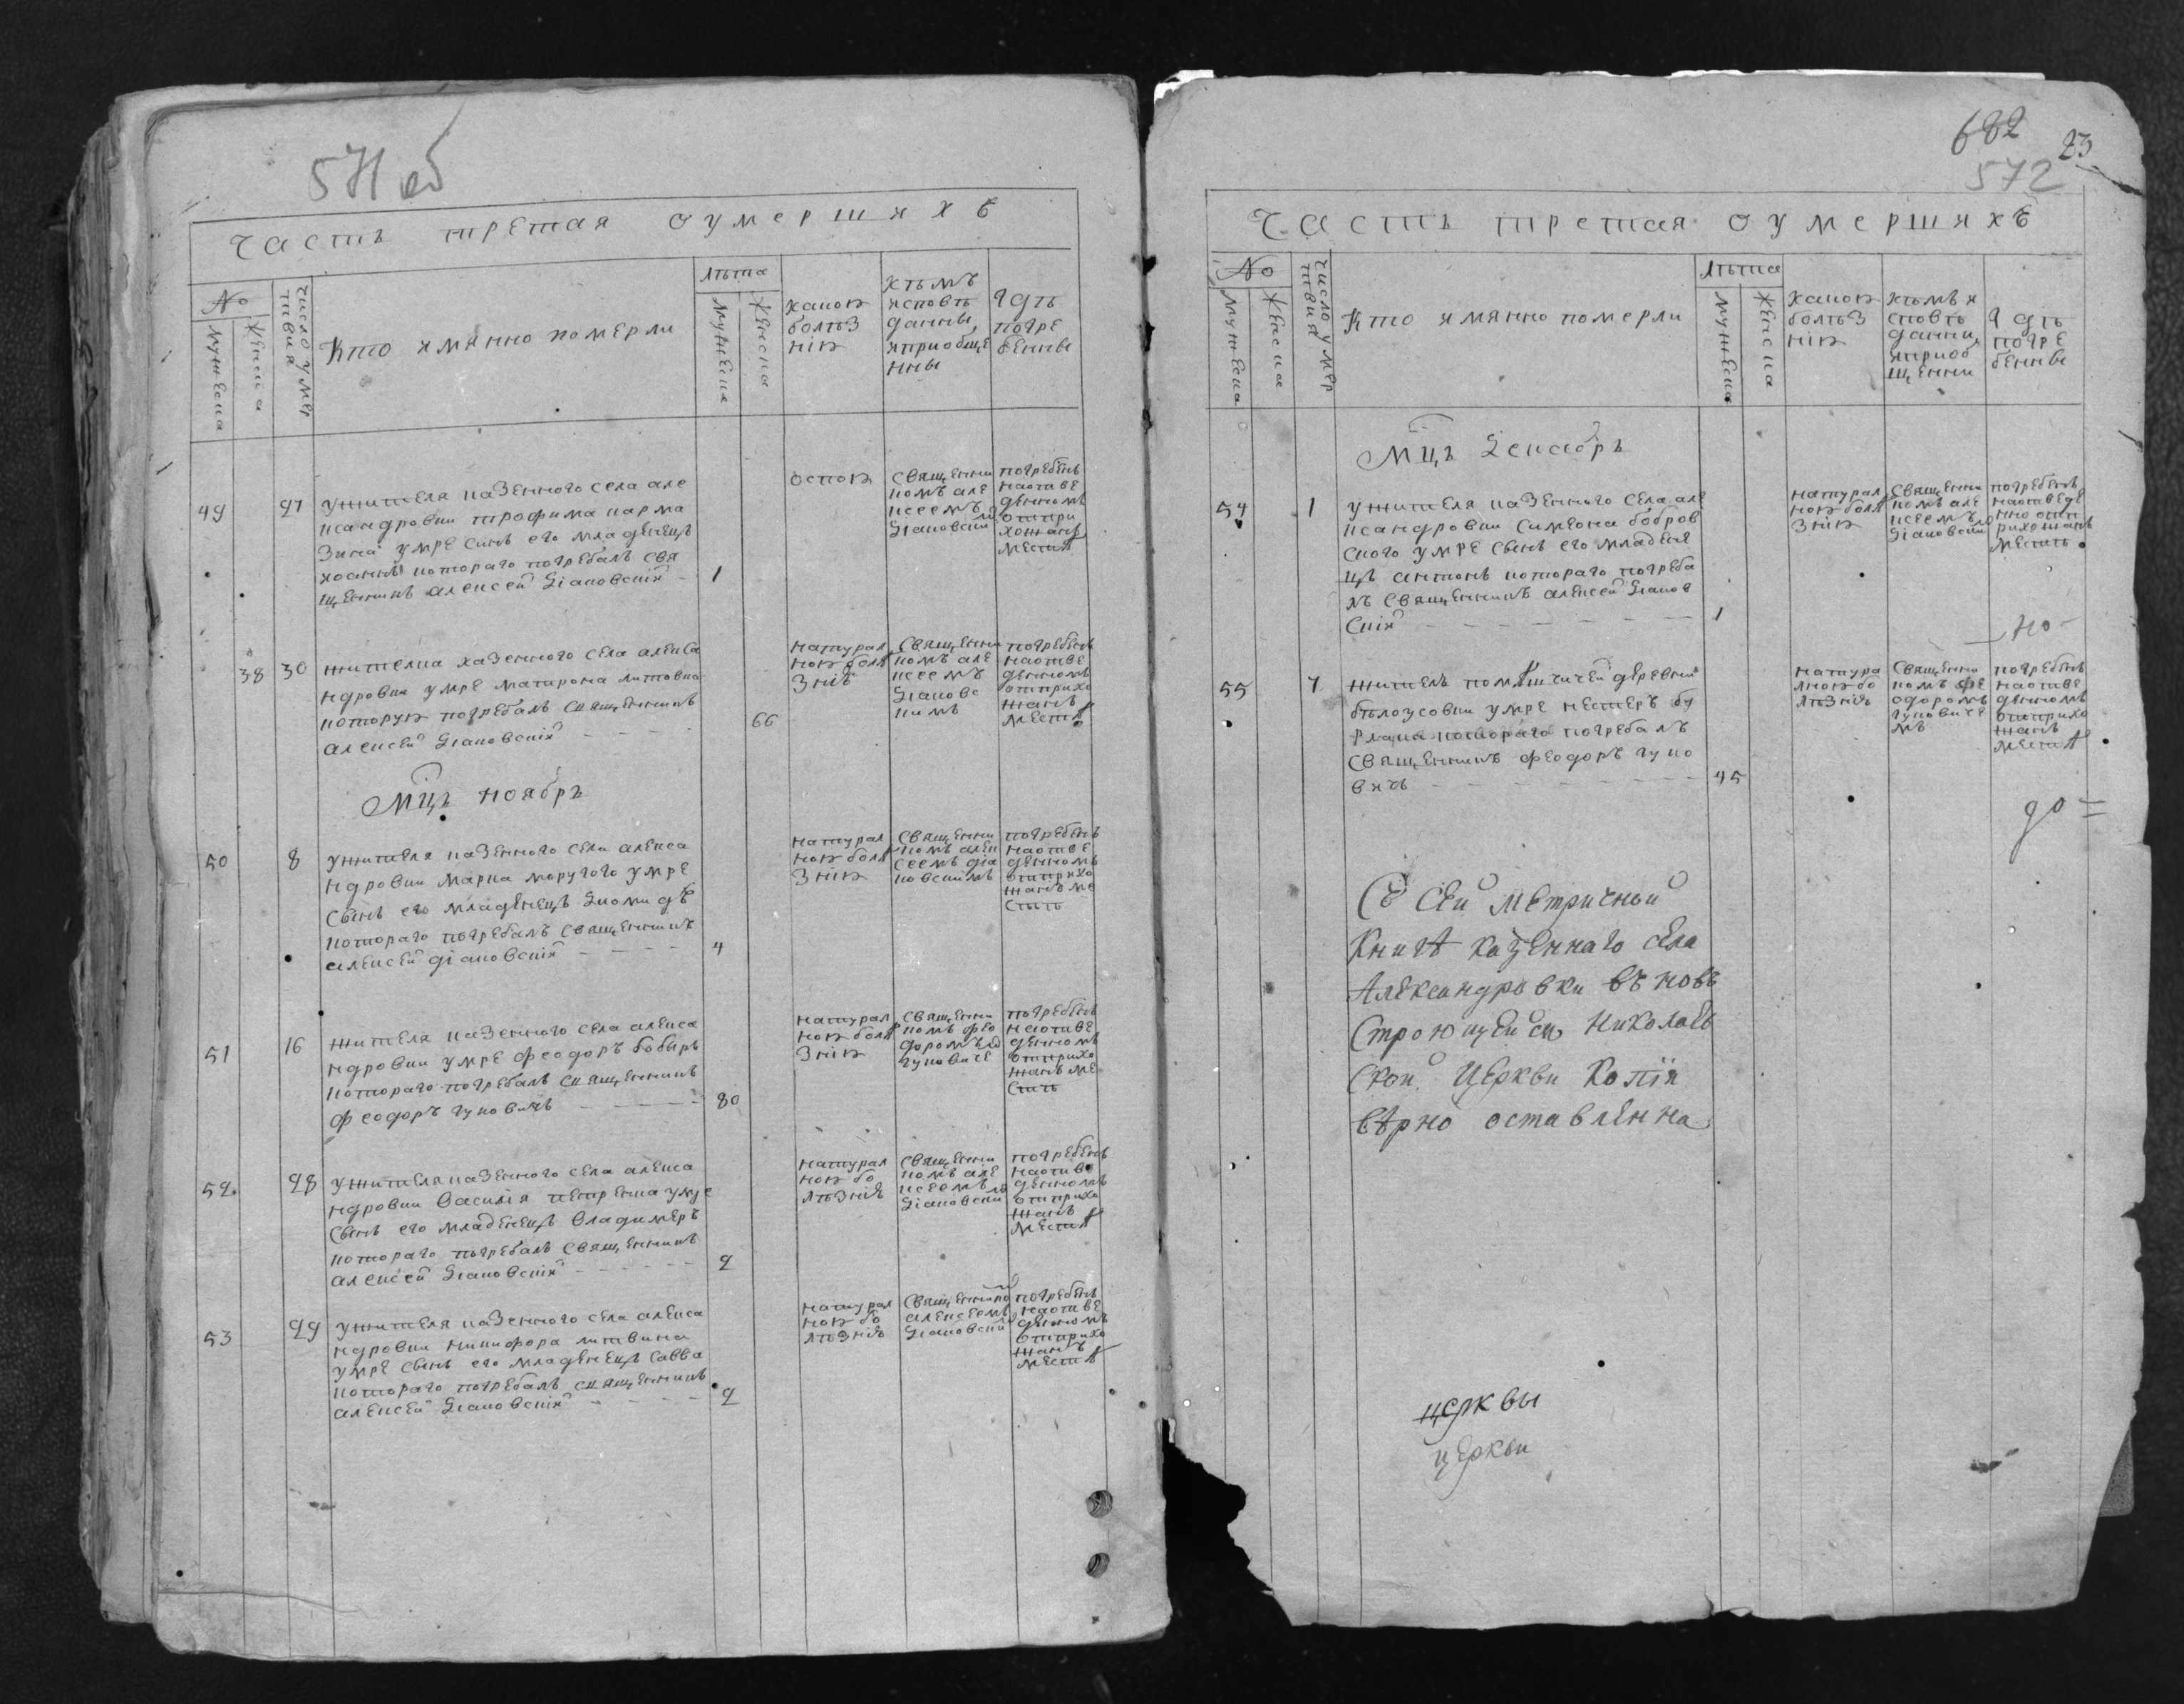 571 об
Часть третая оумершихъ
№
мужеска
женска
число умертвия
Кто имянно померли
лѣта
мужеска
женска
какою
болѣз
нію
кѣмъ
исповѣ
даны
иприобще
нны
гдѣ
погре
бенны
49
27
ужителя казенного села але
ксандровки трофима карма
зина умре синъ его младенецъ
иоаннъ котораго погребалъ свя
щенникъ алексей Діаковскій
1
оспою
священни
комъ але
ксеемъ
Діаковскимъ
погребенъ
наотве
денномъ
отпри
хожанъ
местѣ
38
30
жителка казенного села алекса
ндровки умре матрона литовка
которую погребалъ священникъ
алексей Діаковскій
66
натурал
ною болѣ
знію
священни
комъ але
ксеемъ
Діаковс
кимъ
погребенъ
наотве
денномъ
отприхо
жанъ
местѣ
Мцъ ноябръ
50
8
ужителя казенного села алекса
ндровки марка моругого умре
сынъ его младенецъ Диомидъ
котораго погребалъ священникъ
алексей діаковскій
4
натурал
ною болѣ
знію
священни
комъ алек
сеемъ діа
ковскимъ
погребенъ
наотве
денномъ
отприхо
жанъ ме
стѣ
51
16
житель казенного села алекса
ндровки умре феодоръ бобиръ
котораго погребалъ священникъ
феодоръ чуповичъ
80
натурал
ною болѣ
знію
священни
комъ фео
доромъ
чуповиче
погребенъ
наотве
денномъ
отприхо
жанъ ме
стѣ
52
28
ужителя казенного села алекса
ндровки василія петренка умре
сынъ его младенецъ владимеръ
котораго погребалъ священникъ
алексей Діаковскій
2
натурал
ною бо
лѣзнію
священни
комъ але
ксеемъ
Діаковски
погребенъ
наотве
денномъ
отприхо
жанъ
местѣ
53
29
ужителя казенного села алекса
ндровки никифора литвина
умре сынъ его младенецъ савва
котораго погребалъ священникъ
алексей Діаковскій
2
натурал
ною бо
лѣзнію
священнико
алексеемъ
Діаковски
погребенъ
наотве
денномъ
отприхо
жанъ
местѣ
682
23
572
Часть третая оумершихъ
№
мужеска
женска
число умертвия
Кто имянно померли
лѣта
мужеска
женска
какою
болѣз
нію
кѣмъ и
сповѣ
данни
приоб
щенни
гдѣ
погре
бенны
Мцъ Декабръ
54
1
ужителя казенного села але
ксандровки симеона бобров
ского умре сынъ его младене
цъ антонъ котораго погреба
лъ священникъ алексей Діаков
скій
1
натурал
ною болѣ
знію
священни
комъ але
ксеемъ
Діаковски
погребенъ
наотведе
нно отп
рихожанъ
местѣ
но
55
7
житель помѣщичей деревни
бѣлоусовки умре нестеръ бу
рлака котораго погребалъ
священникъ феодоръ чупо
вичъ
45
натура
лною бо
лѣзнію
священни
комъ фе
одоромъ
чуповиче
мъ
погребенъ
наотве
денномъ
отприхо
жанъ
местѣ
до =
Съ сей метричной
Книгѣ казеннаго села
Александровки въ новь
строющейся Николаев
ской Церкви Копія
вѣрно оставленна
церквы
церкви